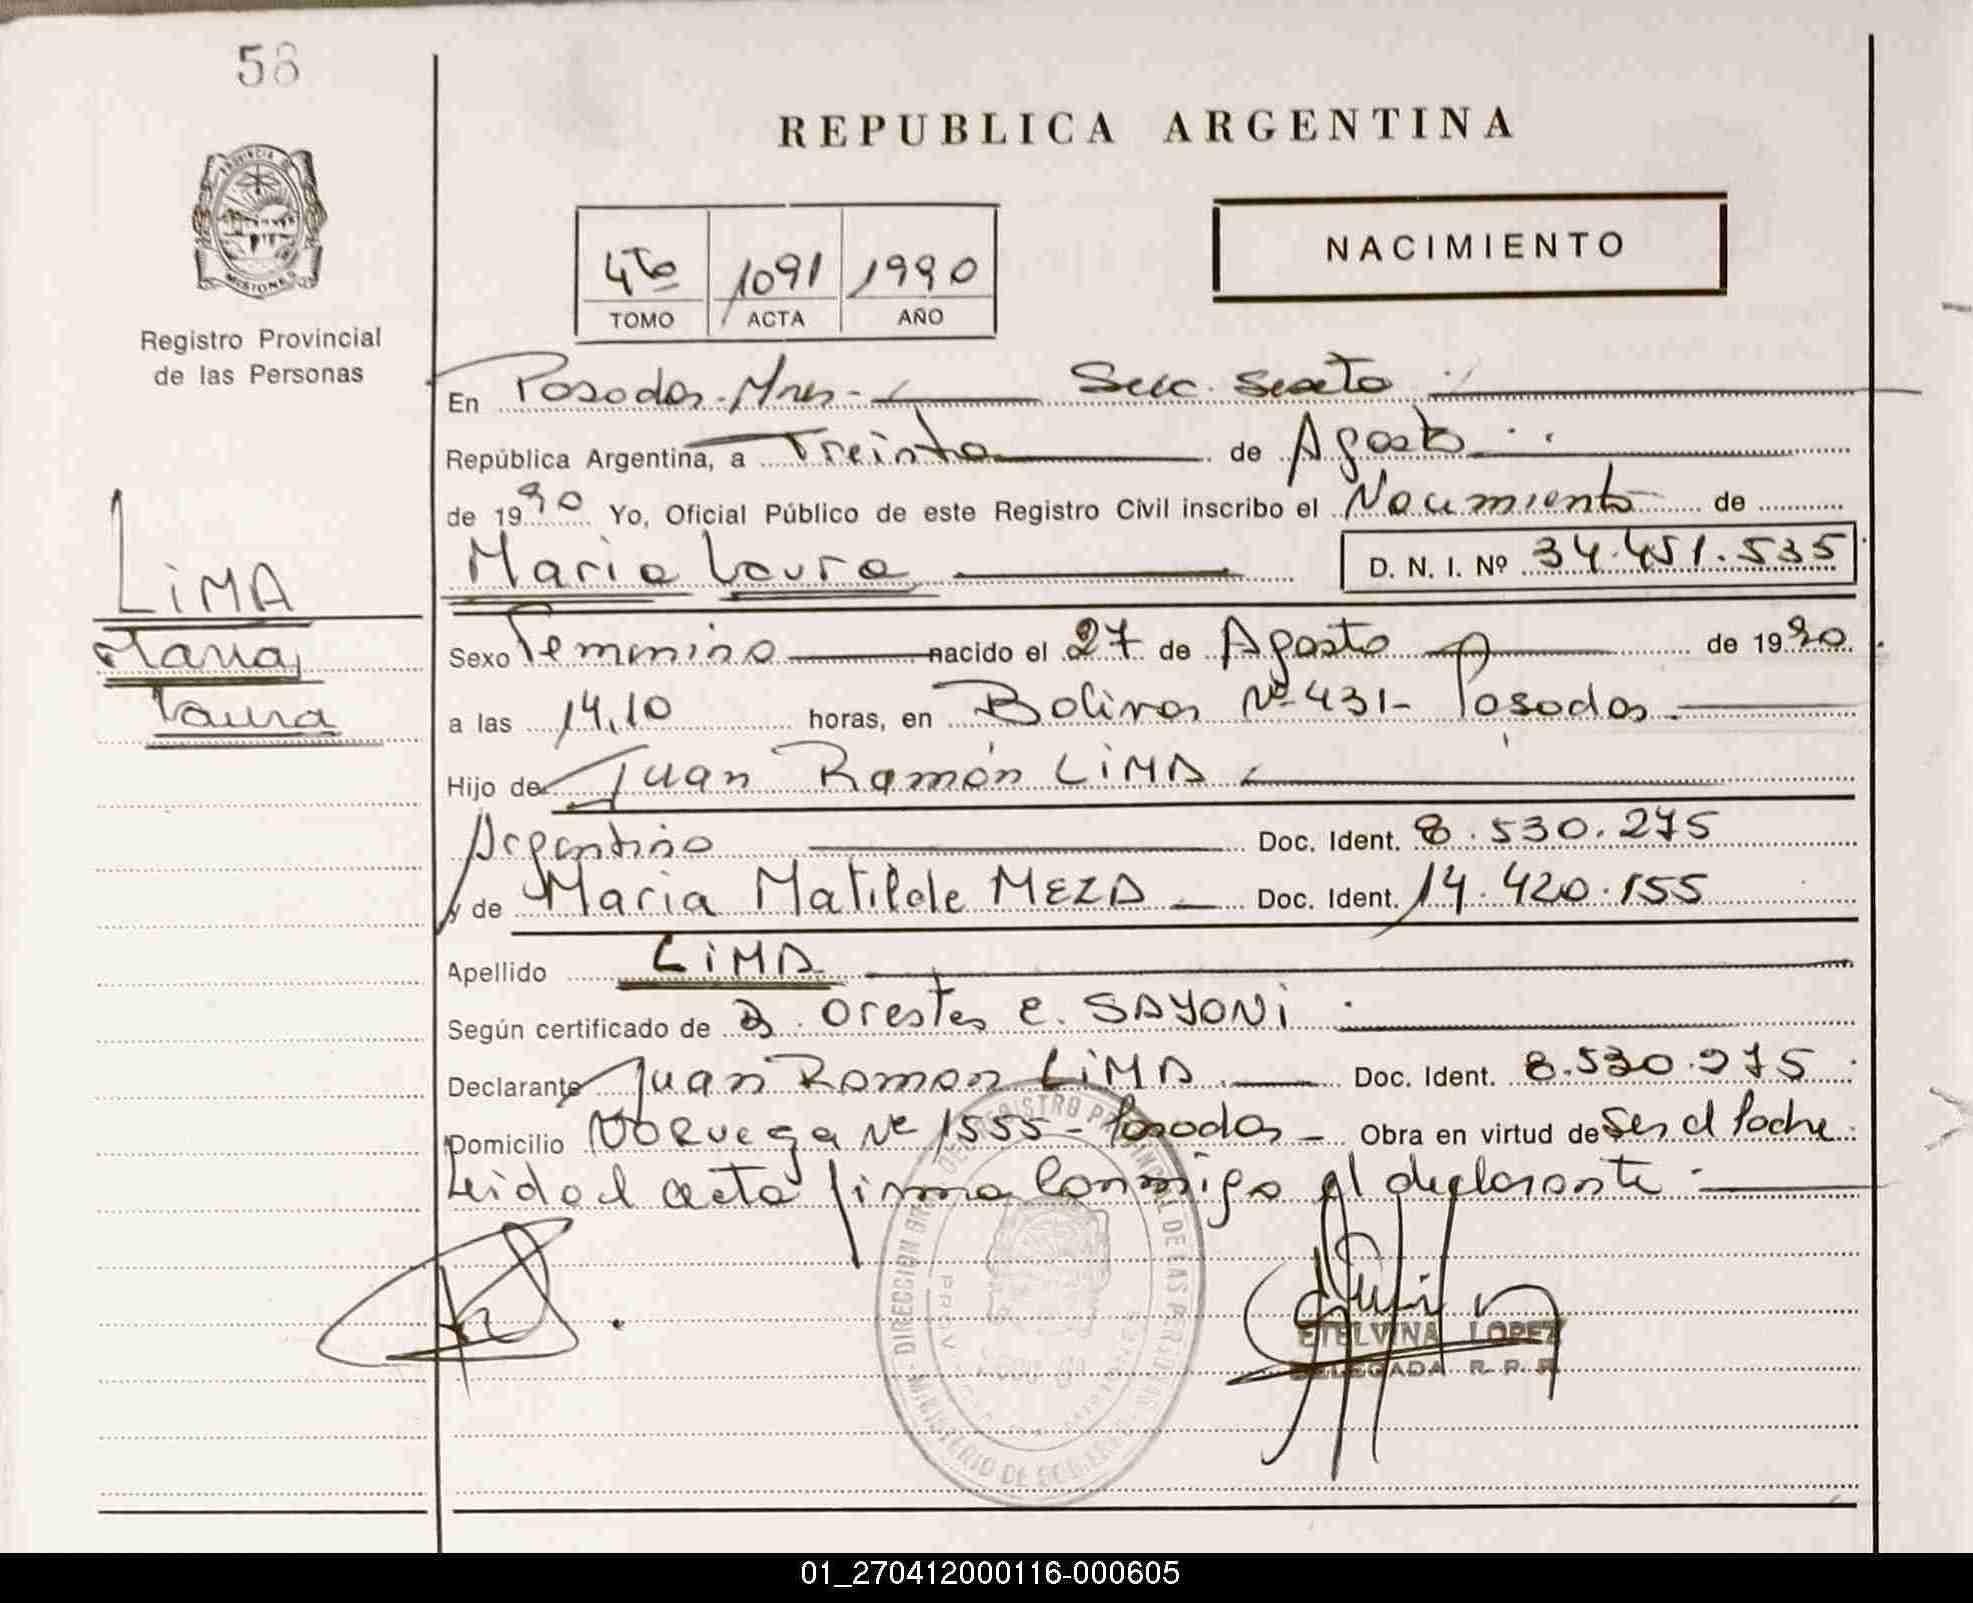 58
REPUBLICA ARGENTINA
PROVINCIA DE
MISIONES
Registro Provincial
de las Personas
4to 1091 1990
TOMO ACTA AÑO
NACIMIENTO
En Posadas - Mnes - Secc. Sexta
República Argentina, a Treinta de Agosto
de 1990 Yo, Oficial Público de este Registro Civil inscribo el Nacimiento de
Maria Laura D. N. I. Nº 34.451.535
LiMA
Maria
Laura
Sexo Femenino nacido el 27 de Agosto de 1990
a las 14,10 horas, en Bolivar Nº 431 - Posadas
Hijo de Juan Ramón LiMA
Argentino Doc. Ident. 8.530.275
y de Maria Matilde MEZA Doc. Ident. 14.420.155
Apellido LiMA
Según certificado de Orestes E. SAYONi
Declarante Juan Ramon LiMA Doc. Ident. 8.530.275
Domicilio Noruega Nº 1555 - Posadas - Obra en virtud de Ser el Padre
Leida el acta firma conmigo el declarante
ETELVINA LOPEZ
DELEGADA R. P. P.
01_270412000116-000605